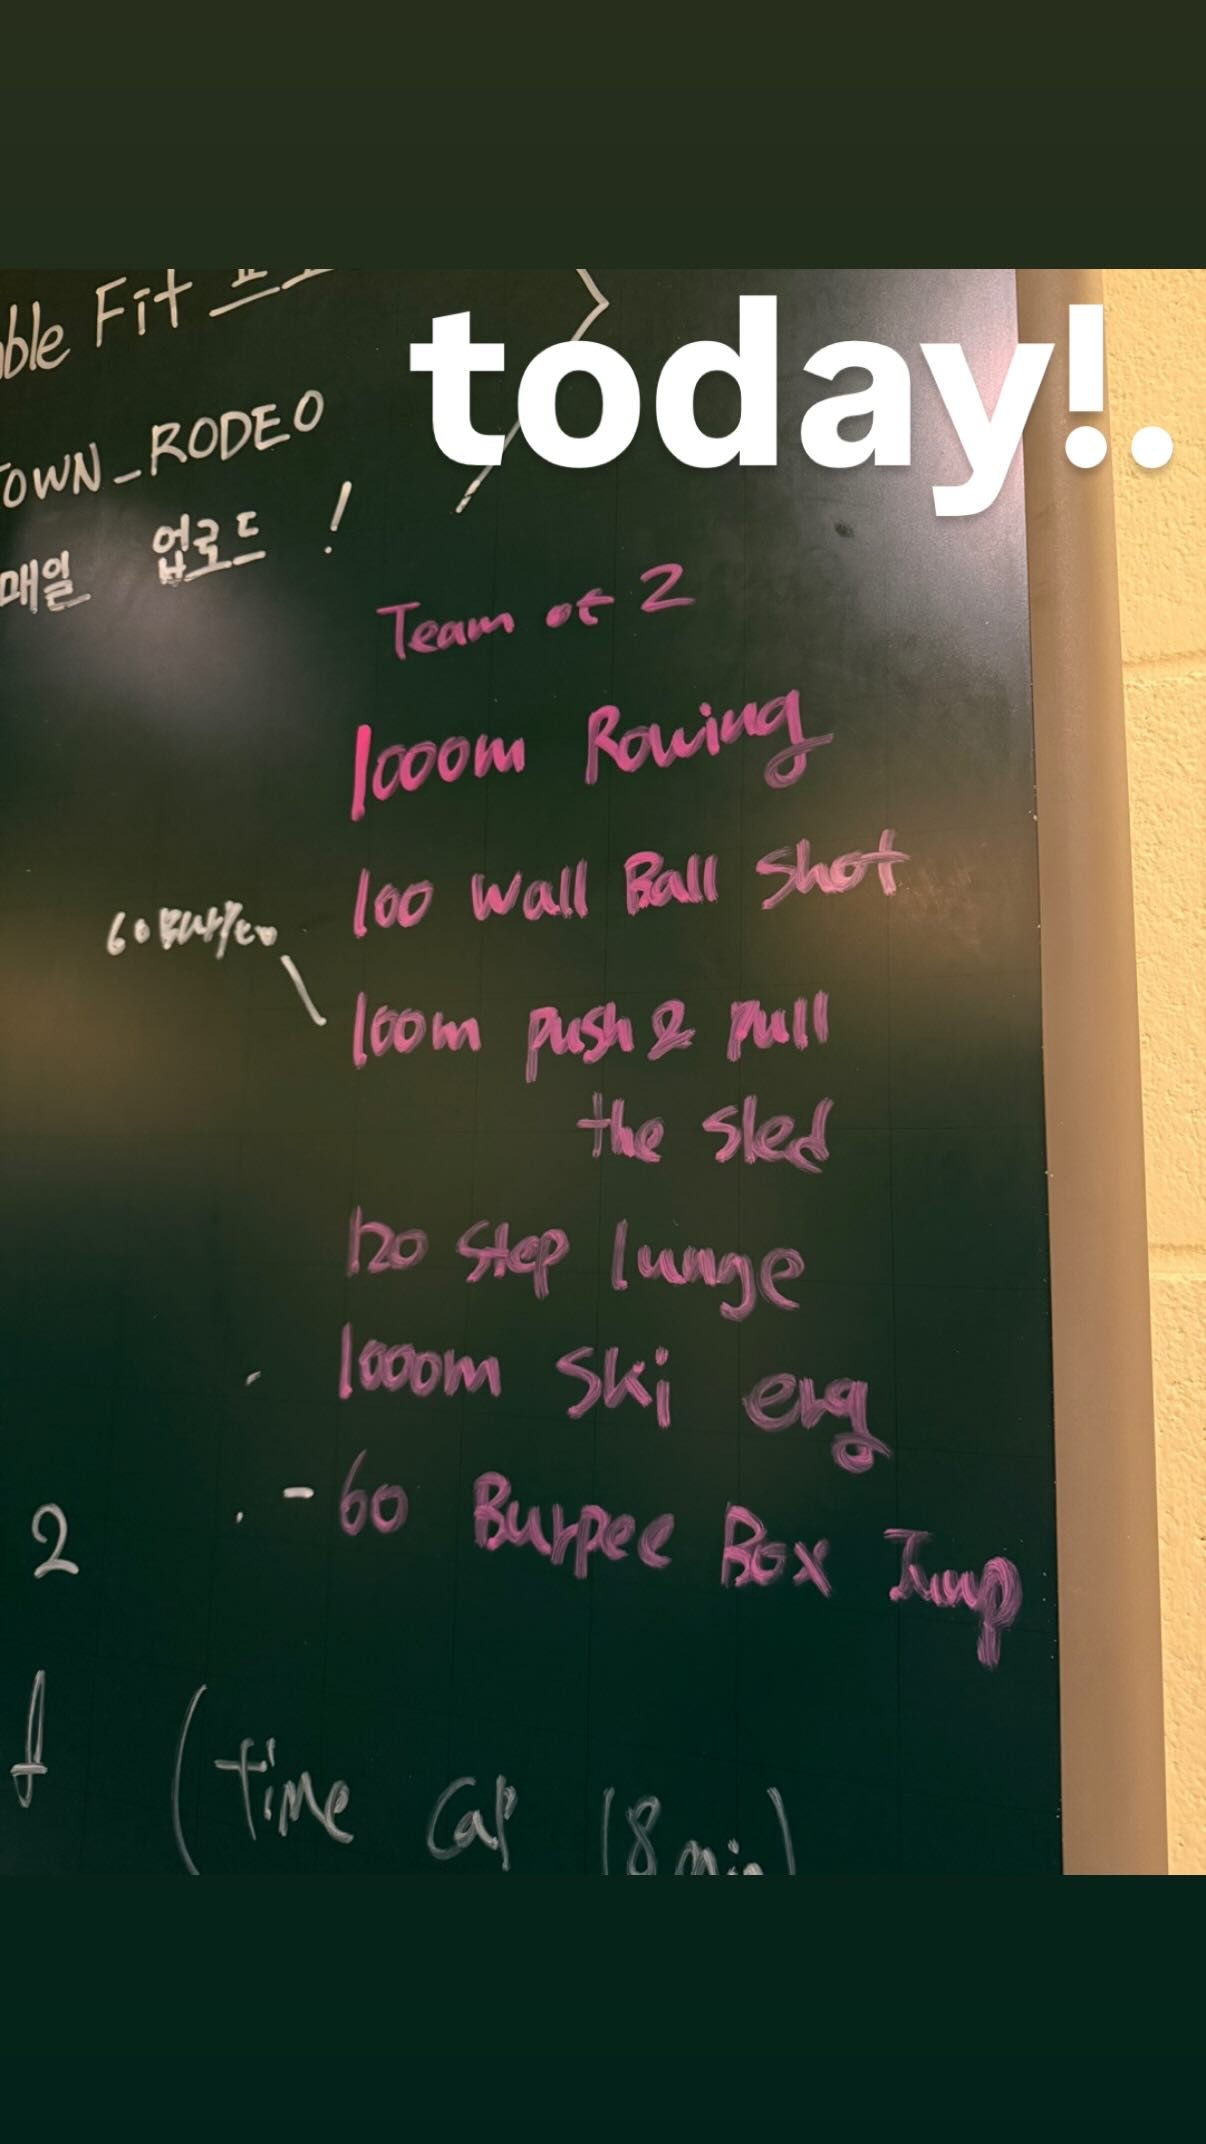 today!..
ble Fit
TOWN_RODEO
매일 업로드 !
Team of 2
1000m Rowing
100 Wall Ball Shot
60 Burpee
100m push & pull
the sled
120 step lunge
1000m Ski erg
- 60 Burpee Box Jump
2
(Time Cap 18 min)